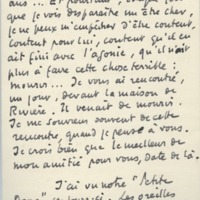 ans ... Et pourtant, 
de vois disparaître un être cher,
je ne peux m'empêcher d'être content,
content pour lui, content qu'il en
ait fini avec l'agonie, qu'il n'ait
plus à faire cette chose terrible :
mourir... Je vous ai rencontré,
un jour, devant la maison de
Rivière. Il venait de mourir.
Je me souviens souvent de cette
rencontre, quand je pense à vous.
Je crois bien que le meilleur de
mon amitié pour vous, date de là.
J'ai vu notre "Petite
 Les oreilles